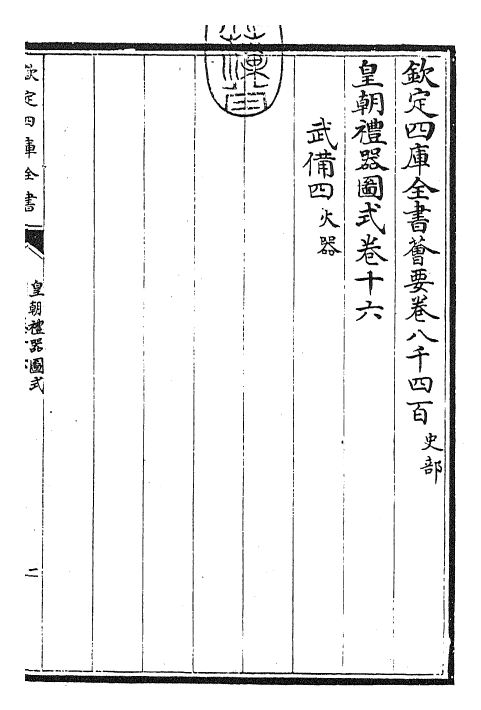 欽定四庫全書薈要卷八千四百 史部
皇朝禮器圖式卷十六
武備四 火器
欽定四庫全書
皇朝禮器圖式